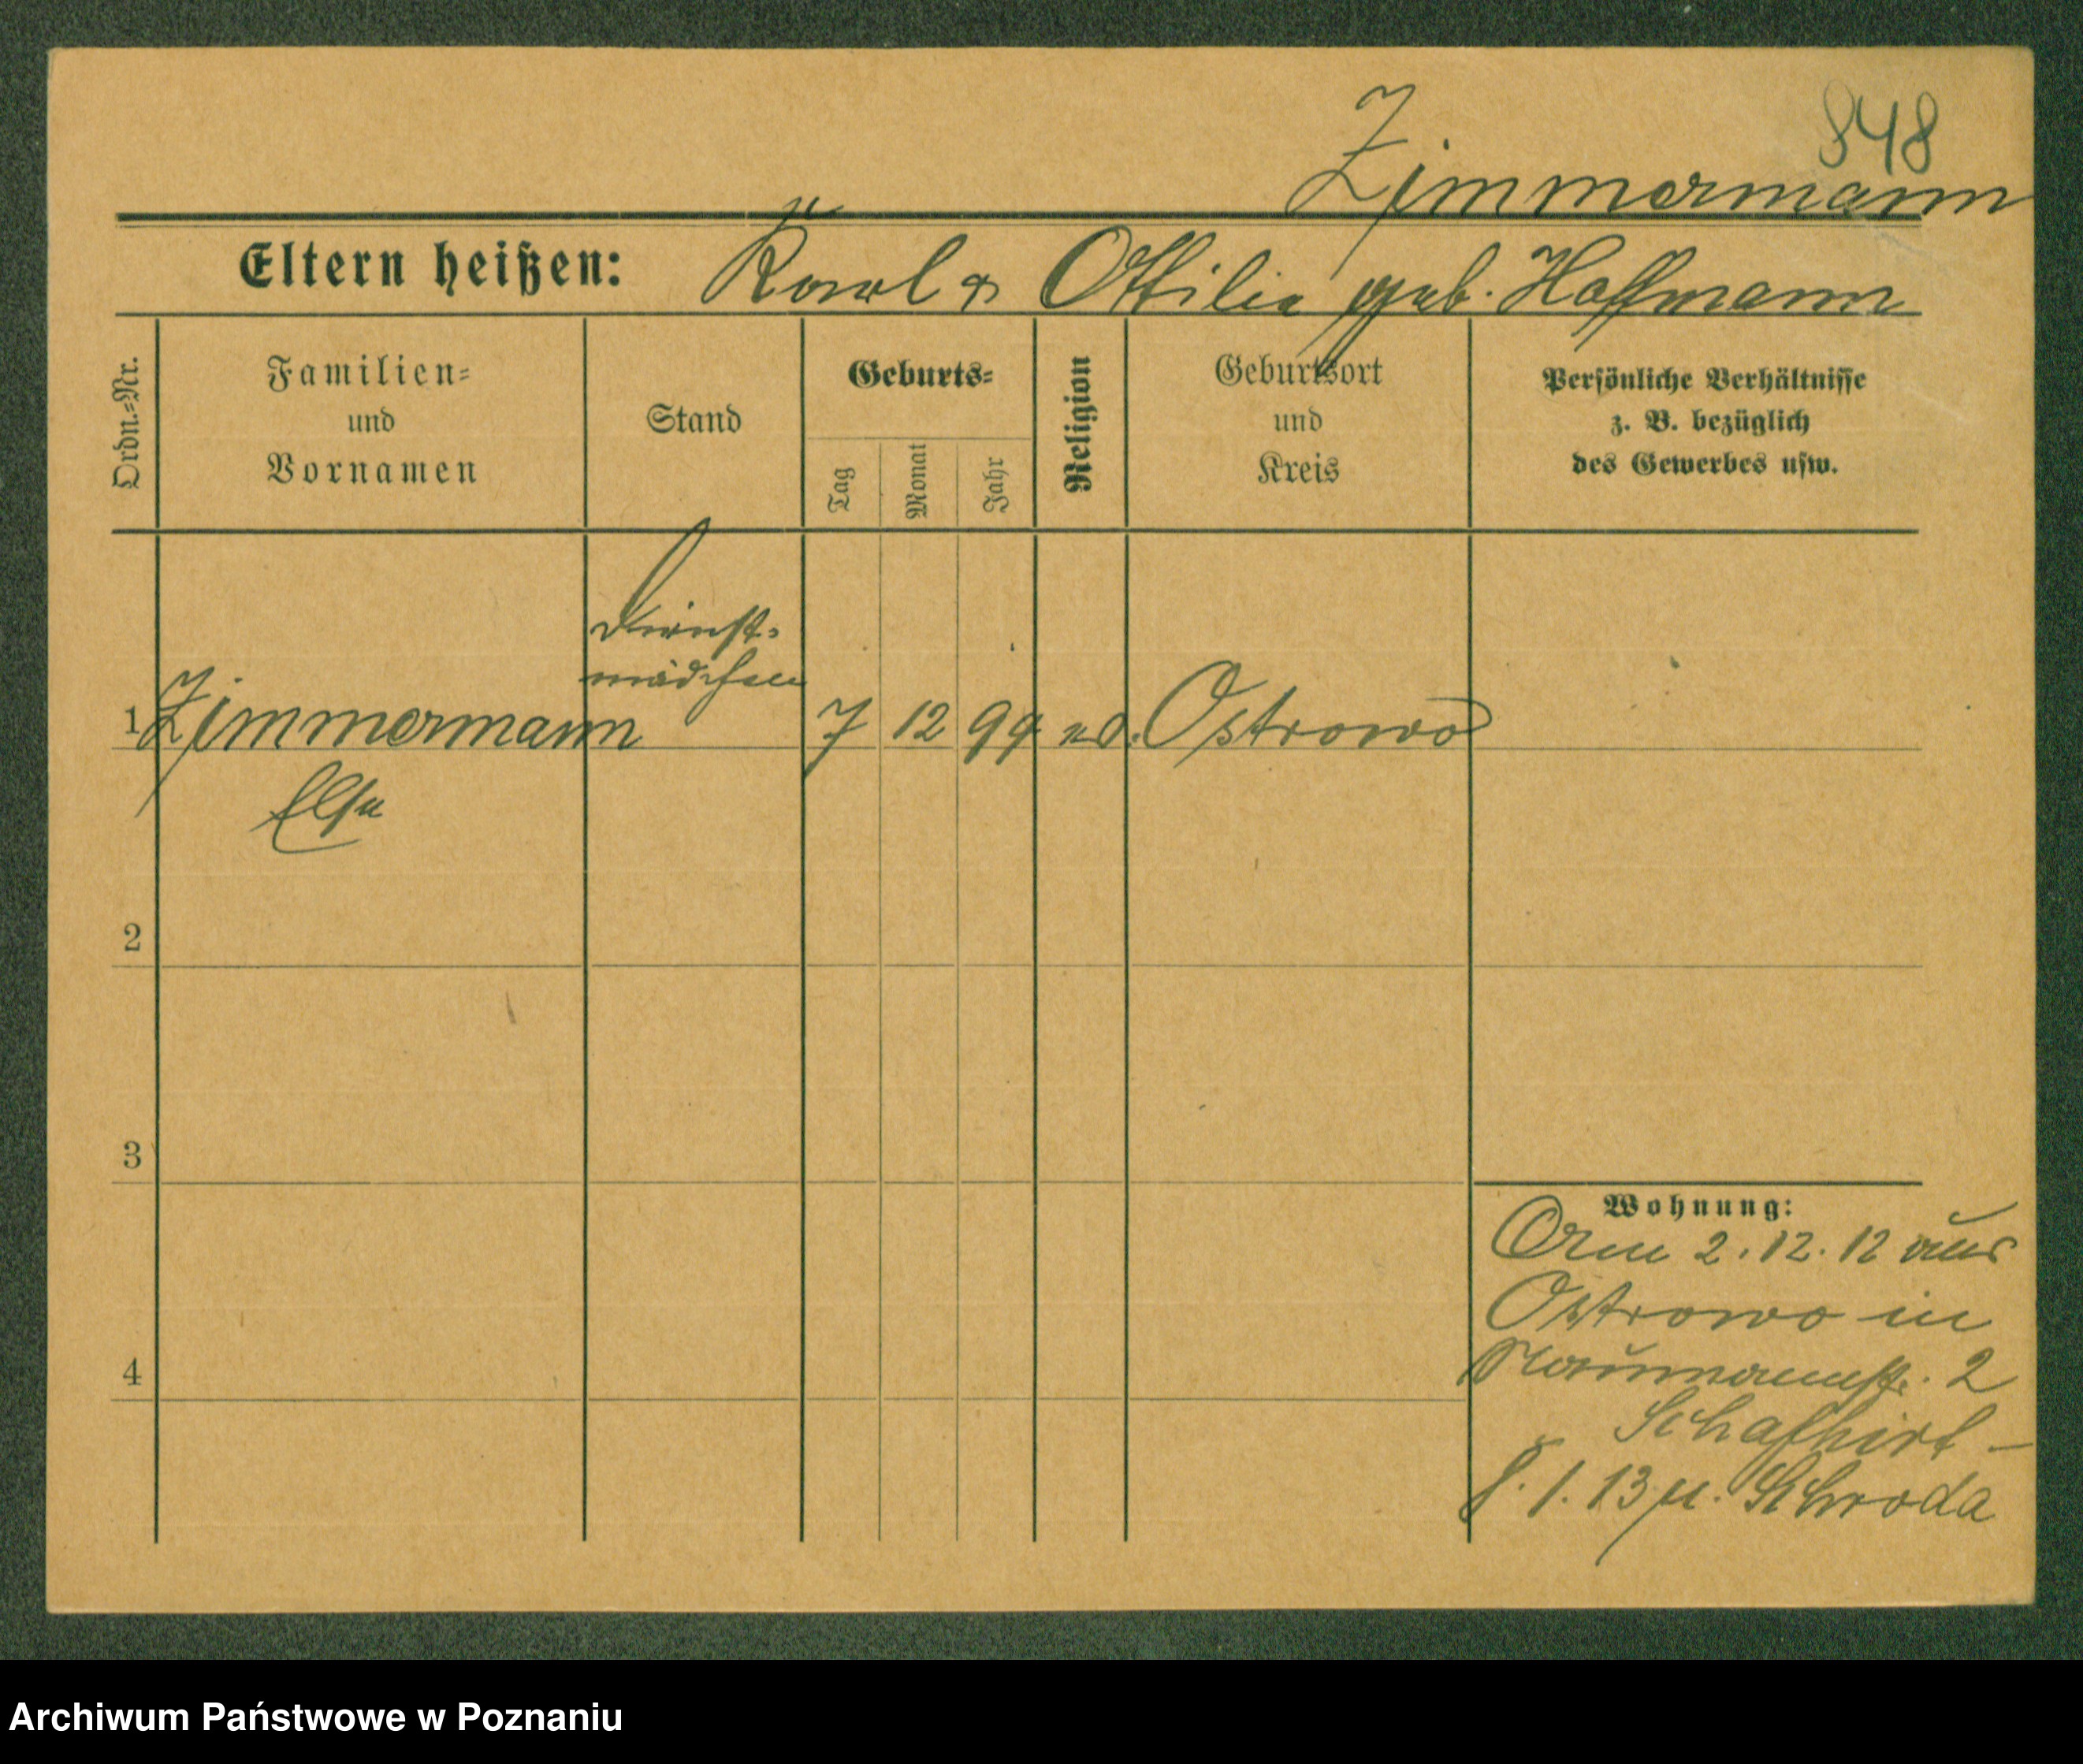 848
Zimmermann
Eltern heißen: Karl & Ottilie geb. Hoffmann
Ordn.=Nr.
Familien=
und
Vornamen
Stand
Geburts=
Tag
Monat
Jahr
Religion
Geburtsort
und
Kreis
Persönliche Verhältnisse
z. B. bezüglich
des Gewerbes usw.
Dienst-
mädchen
1 Zimmermann 7 12 99 ev. Ostrowo
Else
2
3
4
Wohnung:
2. 12. 12 aus
Ostrowo in
Naumannstr. 2
Schafhirt -
8. 1. 13 n. Schroda
Archiwum Państwowe w Poznaniu